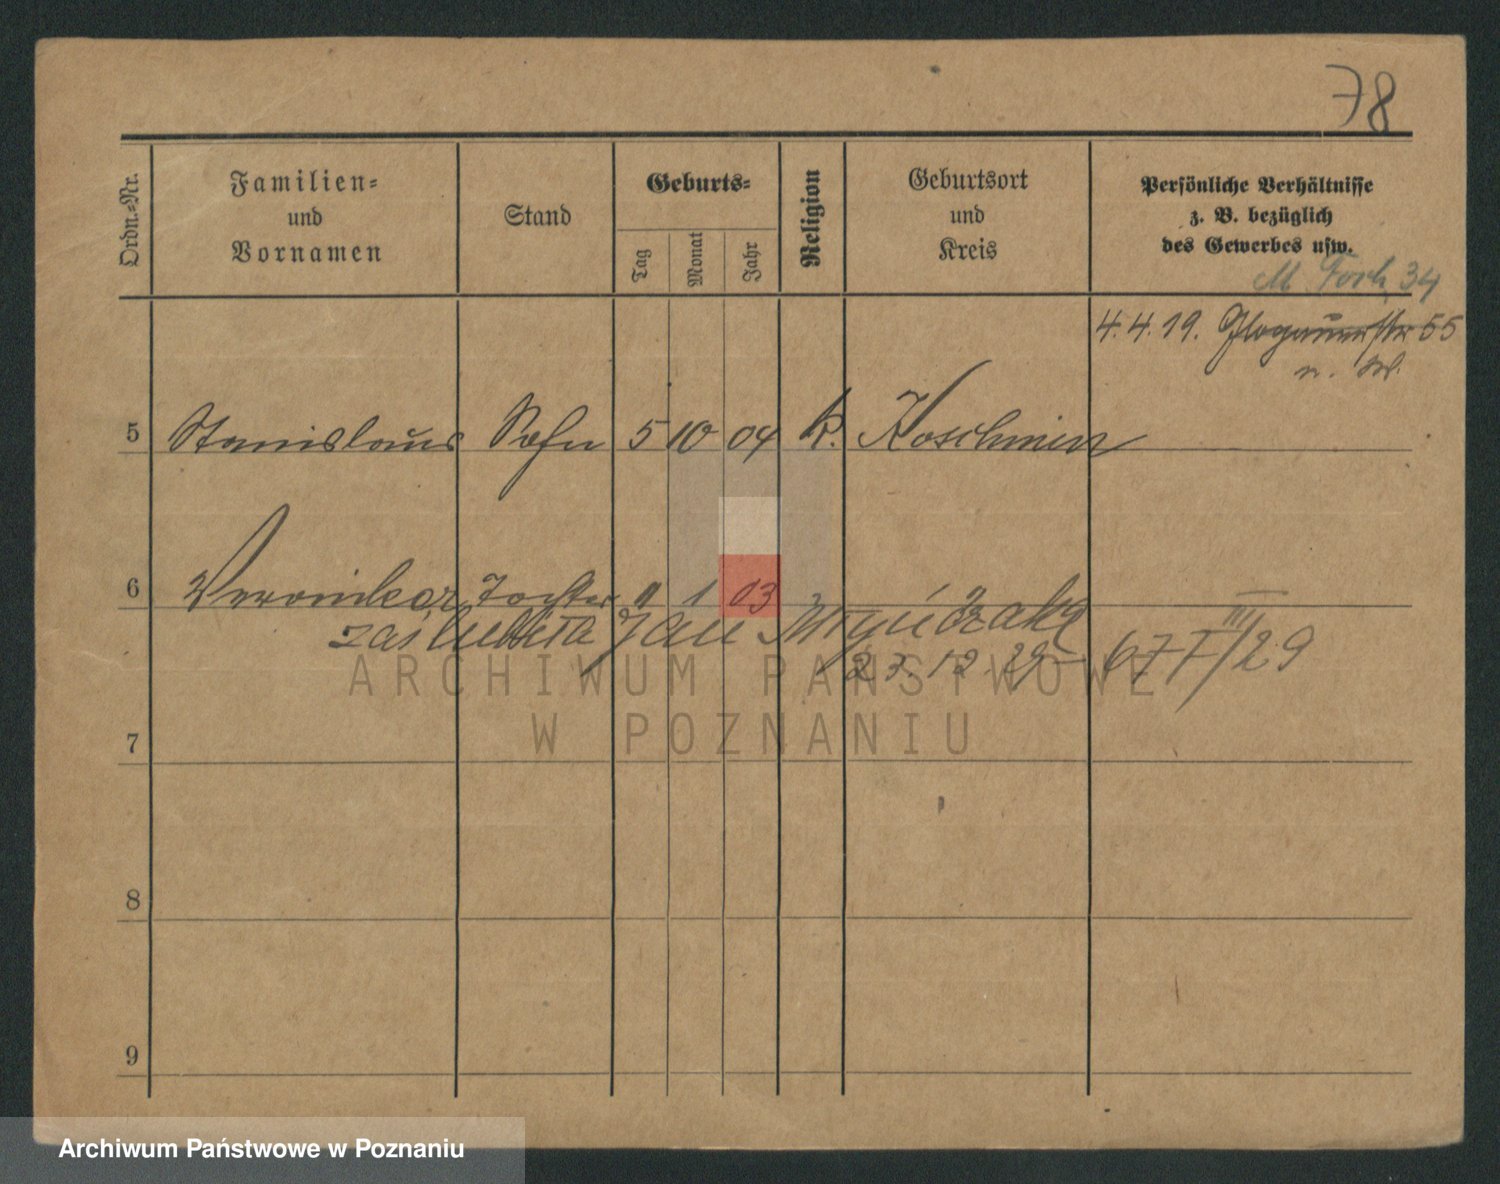 78
Ordn.-Nr.
Familien-
und
Vornamen
Stand
Geburts-
Tag
Monat
Jahr
Religion
Geburtsort
und
Kreis
Persönliche Verhältnisse
z. B. bezüglich
des Gewerbes usw.
M 34
4.4.19. Glogauerstr 55
5 Stanislaus Sohn 5 10 04 k. Koschmin
6 Veronika Tochter 11 1 03
zaślubiła Jan
12. 29
7
8
9
ARCHIWUM PAŃSTWOWE
W POZNANIU
Archiwum Państwowe w Poznaniu